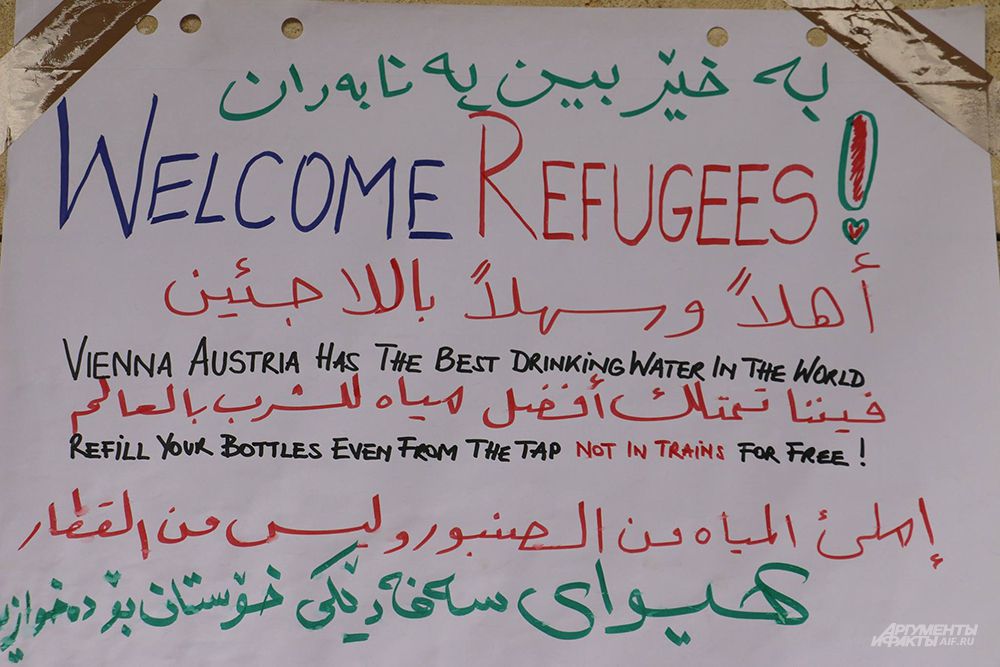 به خێر بین په نابه ران
WELCOME REFUGEES!
أهلاً وسهلاً باللاجئين
VIENNA AUSTRIA HAS THE BEST DRINKING WATER IN THE WORLD
فيننا تمتلك أفضل مياه للشرب بالعالم
REFILL YOUR BOTTLES EVEN FROM THE TAP NOT IN TRAINS FOR FREE!
إملئ المياه من الصنبور وليس من القطار
هیوای سه فه رێکی خۆستان بۆ ده خوازین
АРГУМЕНТЫ
И ФАКТЫ AIF.RU